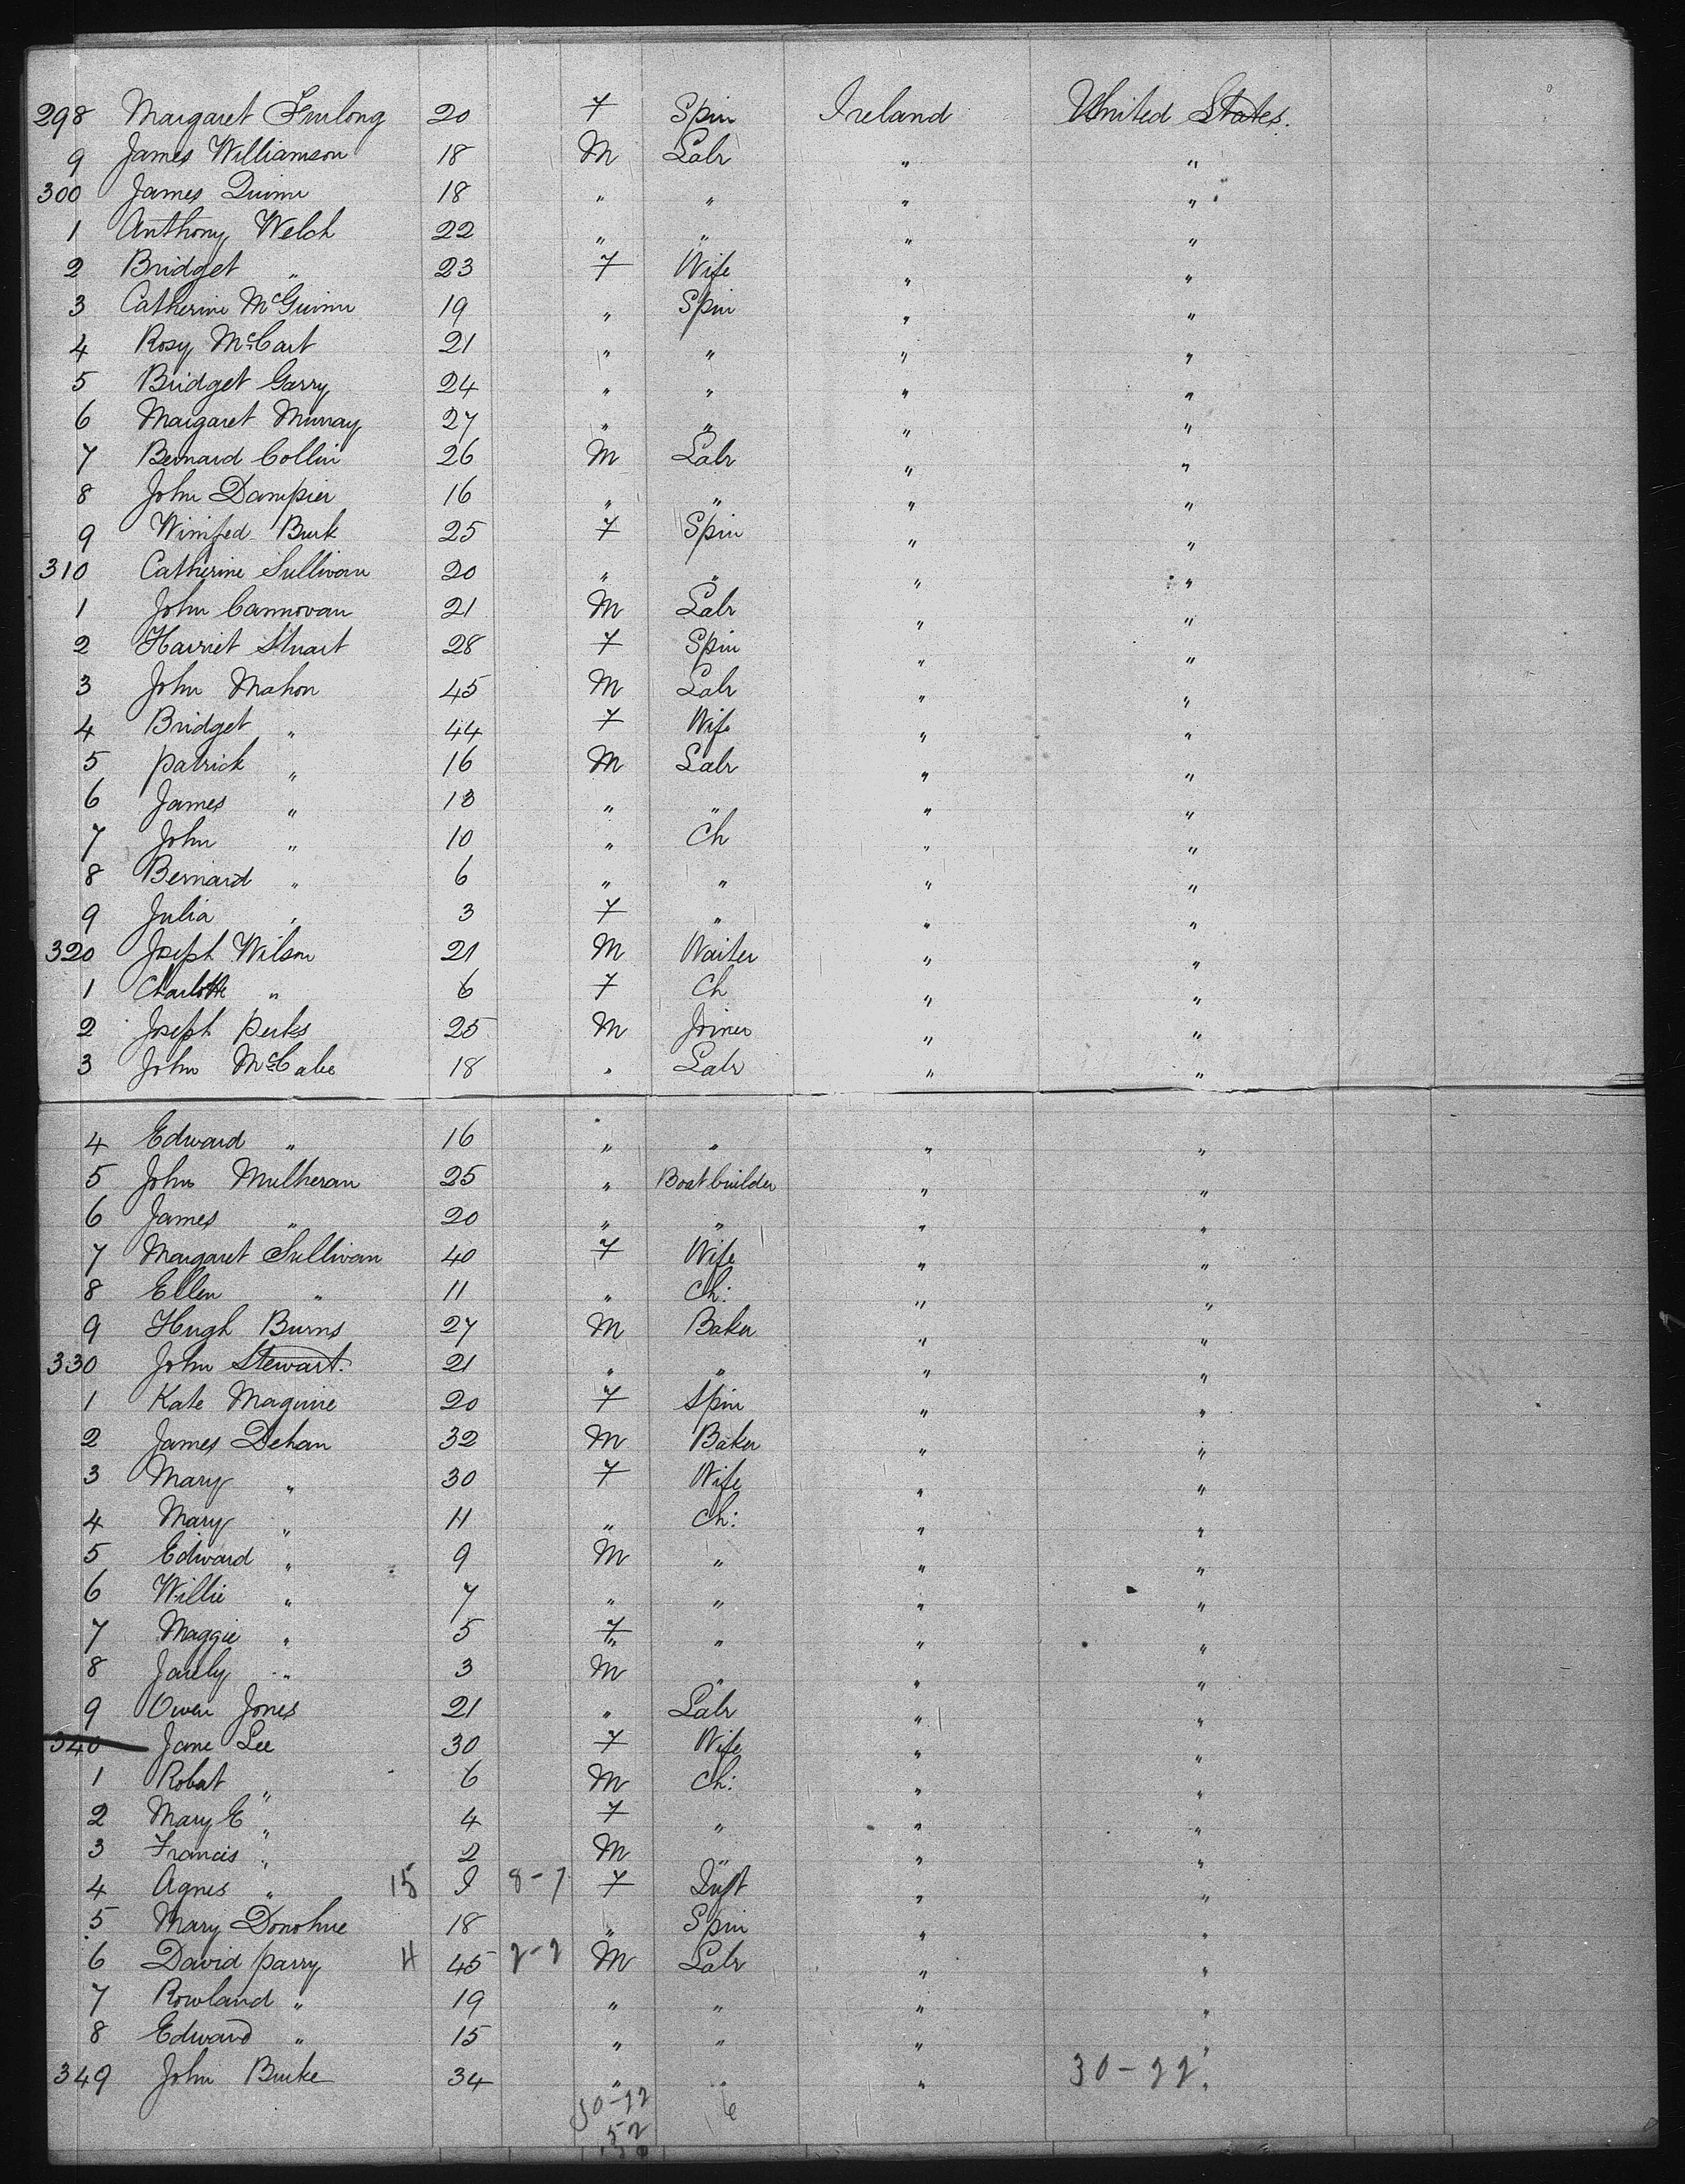 298 Margaret Furlong 20 F Spin Ireland United States.
9 James Williamson 18 M Labr " "
300 James Quinn 18 " " " "
1 Anthony Welch 22 " " " "
2 Bridget " 23 F Wife " "
3 Catherine McGuinn 19 " Spin " "
4 Rosy McCart 21 " " " "
5 Bridget Garry 24 " " " "
6 Margaret Murray 27 " " " "
7 Bernard Collin 26 M Labr " "
8 John Dampier 16 " " " "
9 Winifed Burk 25 F Spin " "
310 Catherine Sullivan 20 " " " "
1 John Cannovan 21 M Labr " "
2 Harriet Stuart 28 F Spin " "
3 John Mahon 45 M Labr " "
4 Bridget " 44 F Wife " "
5 Patrick " 16 M Labr " "
6 James " 13 " " " "
7 John " 10 " Ch " "
8 Bernard " 6 " " " "
9 Julia " 3 F " " "
320 Joseph Wilson 21 M Waiter " "
1 Charlotte " 6 F Ch " "
2 Joseph Perks 25 M Joiner " "
3 John McCabe 18 " Labr " "
4 Edward " 16 " " " "
5 John Mulheran 25 " Boatbuilder " "
6 James " 20 " " " "
7 Margaret Sullivan 40 F Wife " "
8 Ellen " 11 " Ch: " "
9 Hugh Burns 27 M Baker " "
330 John Stewart. 21 " " " "
1 Kate Maguire 20 F Spin " "
2 James Dehan 32 M Baker " "
3 Mary " 30 F Wife " "
4 Mary " 11 " Ch: " "
5 Edward " 9 M " " "
6 Willie " 7 " " " "
7 Maggie " 5 F " " "
8 " 3 M " " "
9 Owen Jones 21 " Labr " "
340 Jane Lee 30 F Wife " "
1 Robat " 6 M Ch: " "
2 Mary E " 4 F " " "
3 Francis " 2 M " " "
4 Agnes " 15 8-7 F Inft " "
5 Mary Donohue 18 " Spin " "
6 David Parry 4 45 2-2 M Labr " "
7 Rowland " 19 " " " "
8 Edward " 15 " " " "
349 John Burke 34 " " " 30-22 "
52